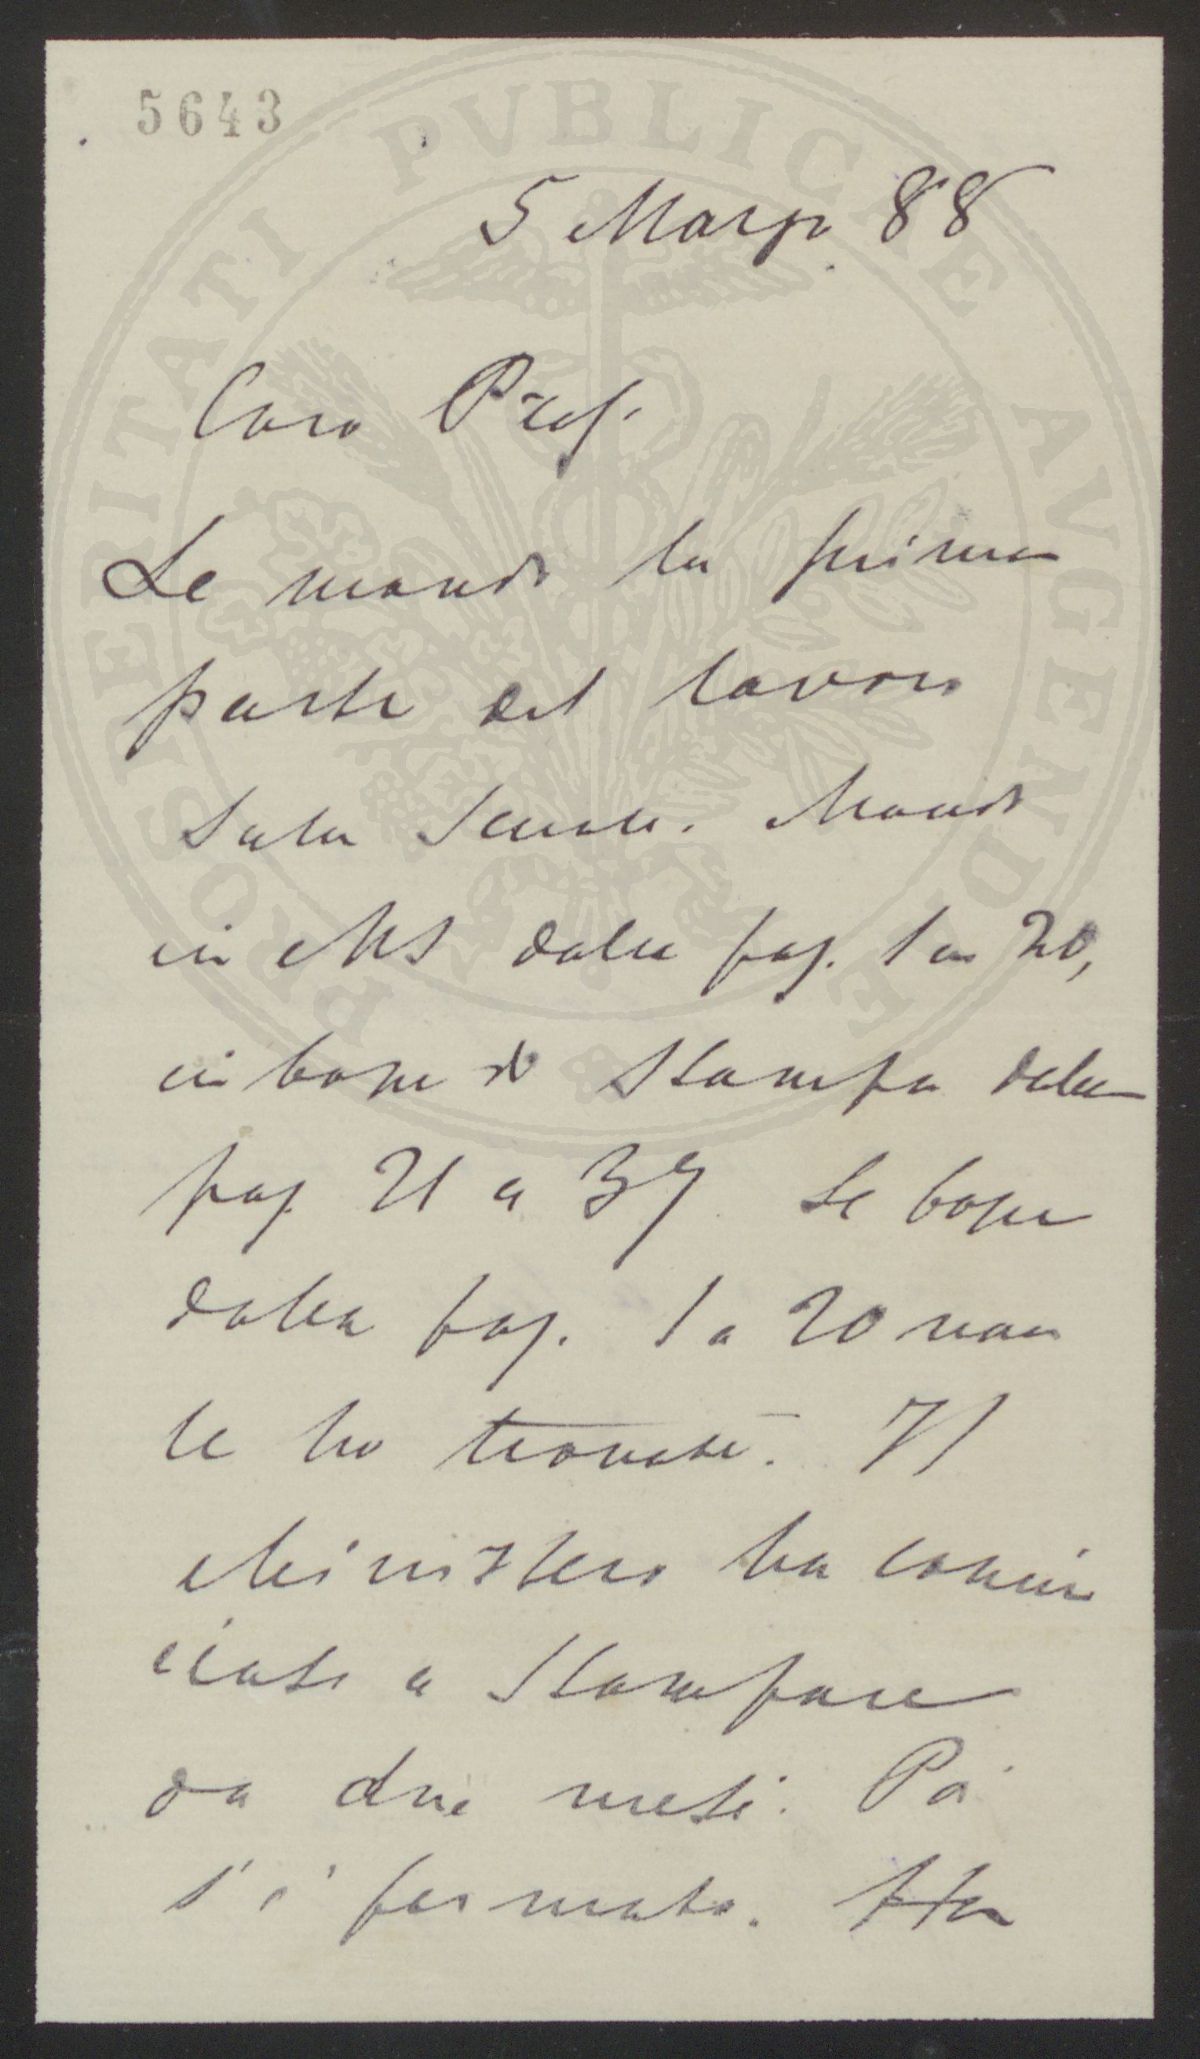 5643
5 Marzo 88
Caro Prof.
Le mando la prima
parte del lavoro
Sula Scuole. Mando
in MS dalla pag. 1 a 20,
in bozze di Stampa dalla
pag. 21 a 37. Le bozze
dalla pag. 1 a 20 non
le ho trovate. Il
Ministero ha comin
ciato a Stampare
da due mesi. Poi
s'è fermato. Ha
PROSPERITATI PVBLICAE AVGENDAE